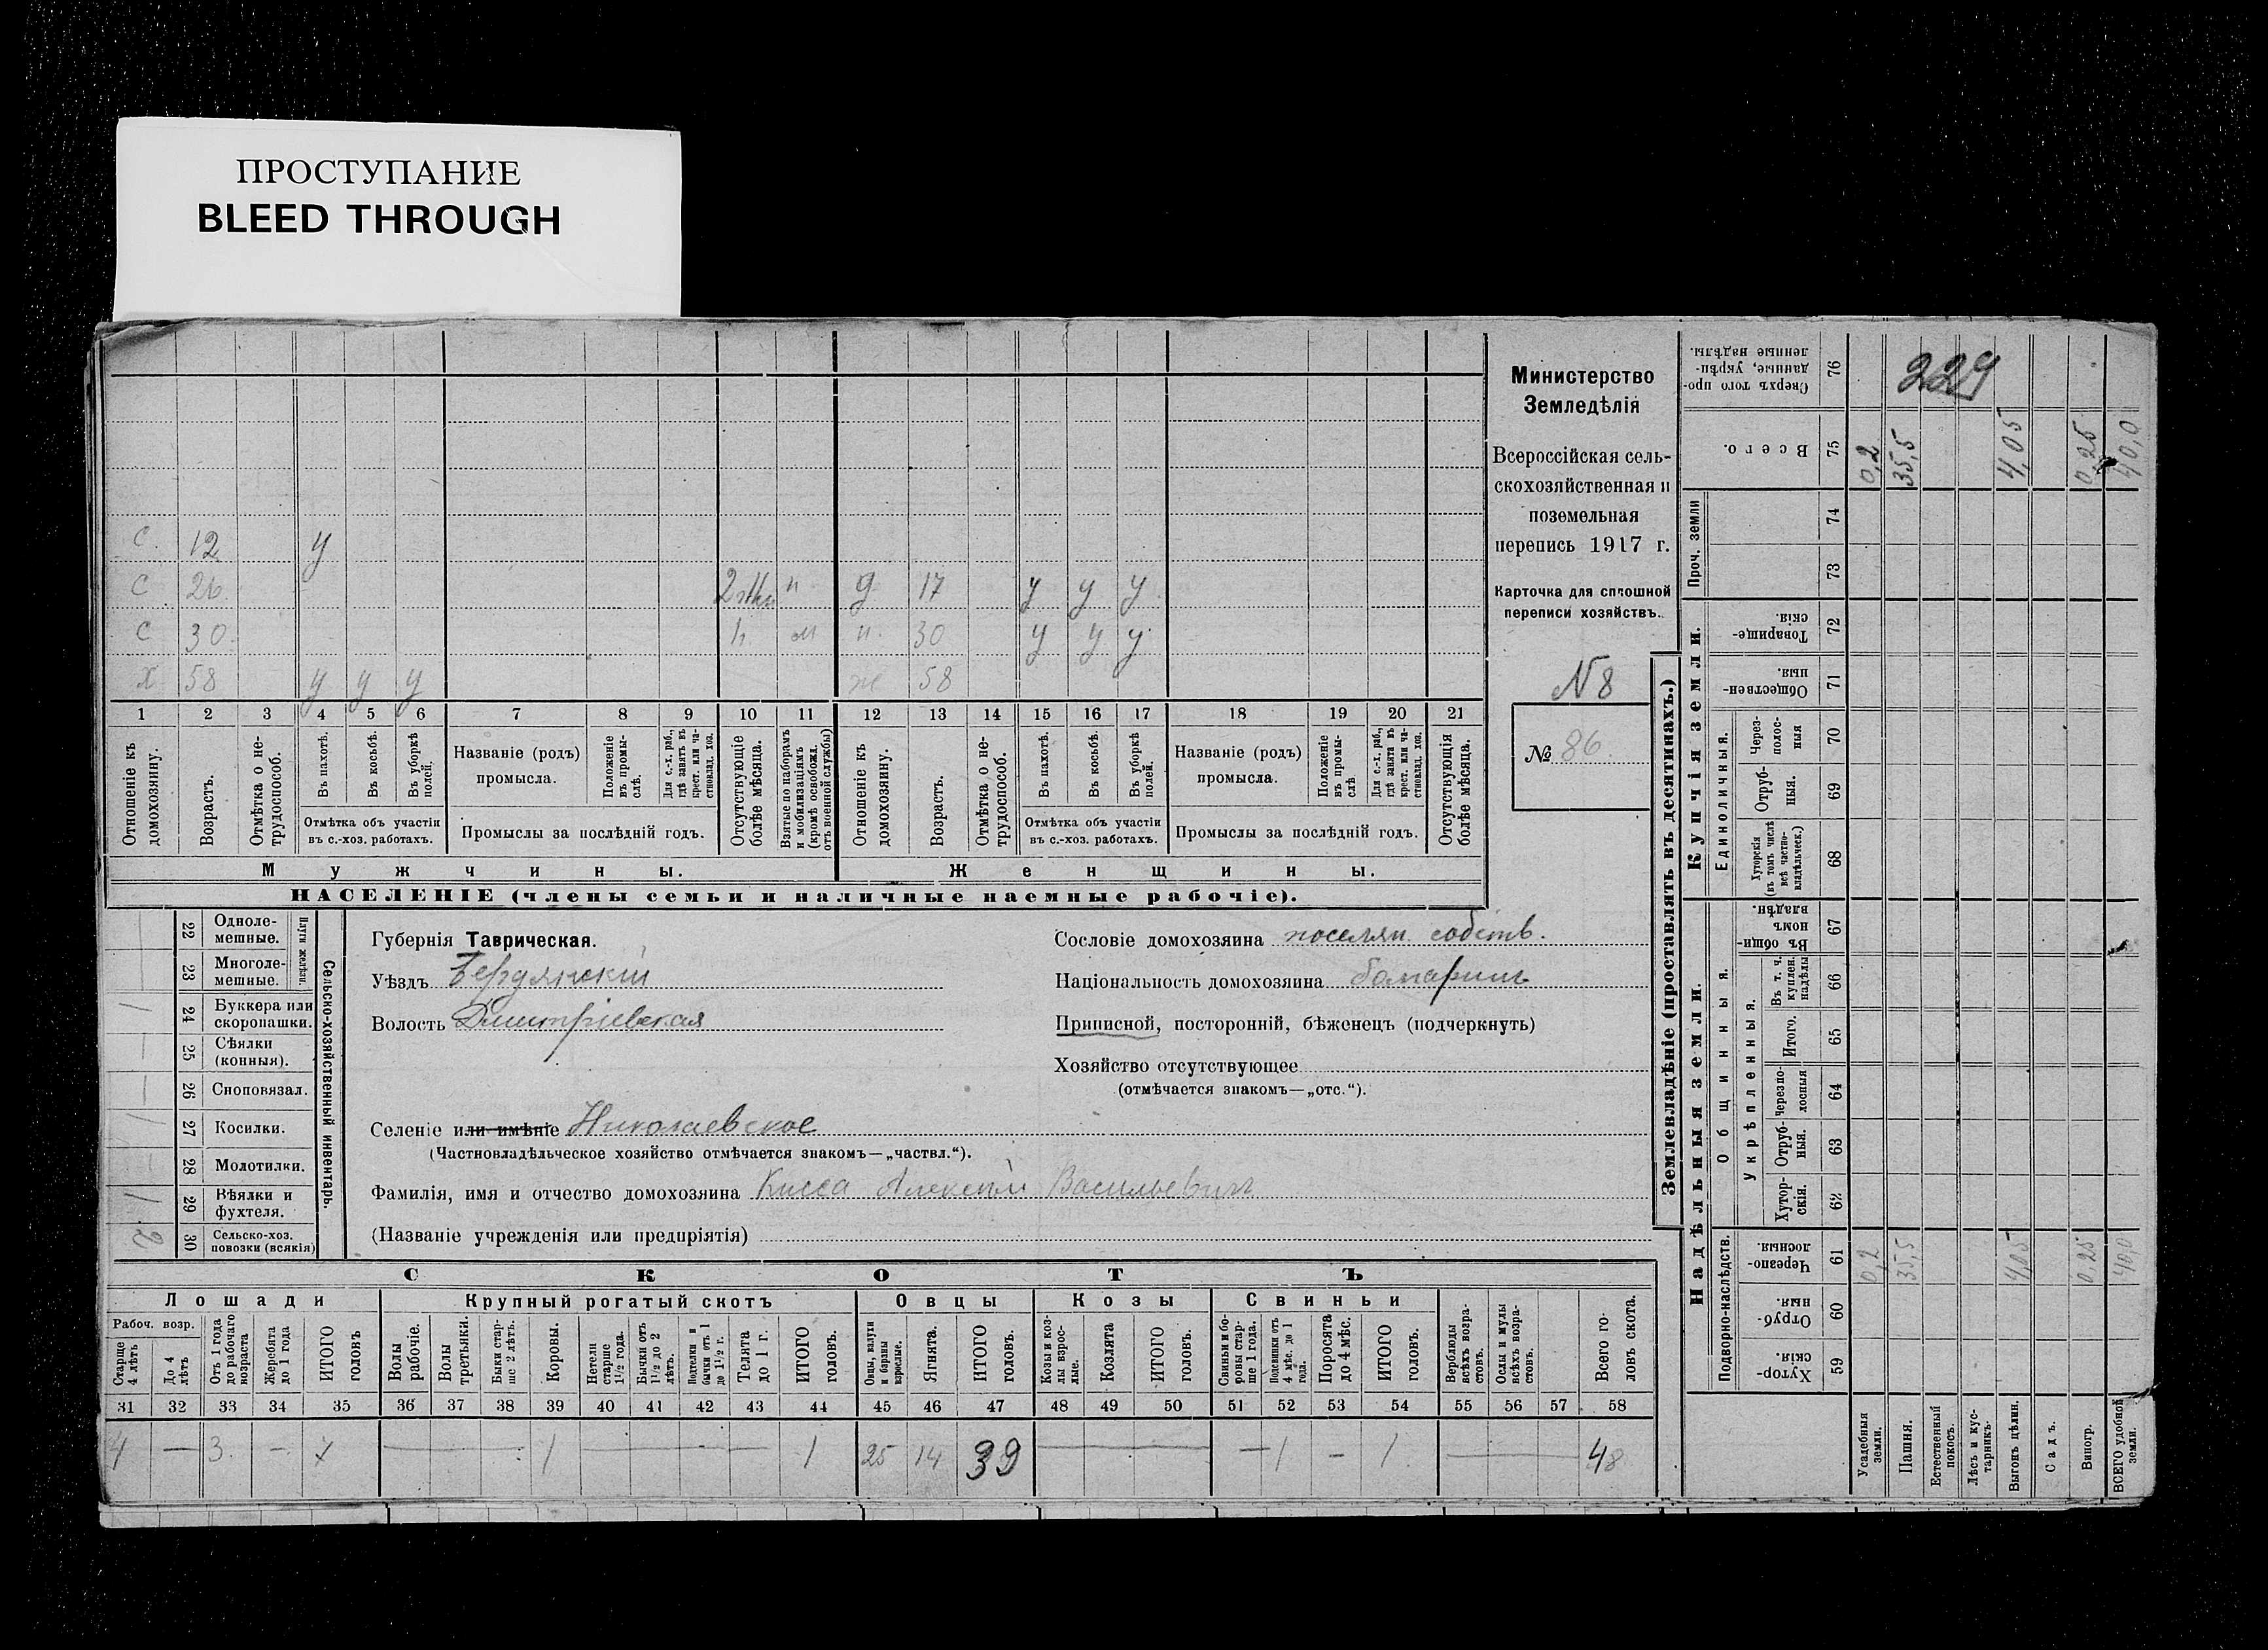 ПРОСТУПАНИЕ
BLEED THROUGH
С. 12 у
С 26 п д 17 у у у
С 30 м н. 30 у у у
Х 58 у у у ж 58
1 2 3 4 5 6 7 8 9 10 11 12 13 14 15 16 17 18 19 20 21
Отношеніе къ домохозяину.
Возрастъ.
Отмѣтка о не-трудоспособ.
Въ пахотѣ.
Въ косьбѣ.
Въ уборкѣ полей.
Отмѣтка объ участіи
въ с.-хоз. работахъ.
Названіе (родъ)
промысла.
Положеніе въ промы-слѣ.
Для с.-х. раб., гдѣ занятъ въ крест. или ча-стновлад. хоз.
Промыслы за послѣдній годъ.
Отсутствующіе болѣе мѣсяца.
Взятые по наборамъ и мобилизаціямъ (кромѣ освобожд. отъ военной службы)
Отношеніе къ домохозяину.
Возрастъ.
Отмѣтка о не-трудоспособ.
Въ пахотѣ.
Въ косьбѣ.
Въ уборкѣ полей.
Отмѣтка объ участіи
въ с.-хоз. работахъ.
Названіе (родъ)
промысла.
Положеніе въ промы-слѣ
Для с.-х. раб., гдѣ занята въ крест. или ча-стновлад. хоз.
Промыслы за послѣдній годъ.
Отсутствующія болѣе мѣсяца.
Мужчины.
Женщины.
НАСЕЛЕНІЕ (члены семьи и наличные наемные рабочіе).
Министерство
Земледѣлія
Всероссійская сель-
скохозяйственная и
поземельная
перепись 1917 г.
Карточка для сплошной
переписи хозяйствъ.
N8
№ 86.
Сельско-хозяйственный инвентарь.
Плуги желѣзн.
22 Одноле-
мешные.
23 Многоле-
мешные.
24 Буккера или
скоропашки.
25 Сѣялки
(конныя).
26 Сноповязал.
27 Косилки.
28 Молотилки.
29 Вѣялки и
фухтеля.
30 Сельско-хоз.
повозки (всякія)
2
Губернія Таврическая.
Уѣздъ Бердянскій
Волость Дмитріевская
Сословіе домохозяина поселян. собств.
Національность домохозяина болгаринъ
Приписной, посторонній, бѣженецъ (подчеркнуть)
Хозяйство отсутствующее
(отмѣчается знакомъ—„отс.“).
Селеніе или имѣніе Николаевское
(Частновладѣльческое хозяйство отмѣчается знакомъ—„частвл.“).
Фамилія, имя и отчество домохозяина Кисса Алексѣй Васильевич
(Названіе учрежденія или предпріятія)
СКОТЪ
Лошади Крупный рогатый скотъ Овцы Козы Свиньи
Рабоч. возр.
Старше 4 лѣтъ
До 4 лѣтъ
Отъ 1 года до рабочаго возраста
Жеребята до 1 года
ИТОГО головъ
Волы рабочіе.
Волы третьяки.
Быки стар-ше 2 лѣтъ.
Коровы.
Нетели старше 1½ года.
Бычки отъ 1½ до 2 лѣтъ.
Подтелки и бычки отъ 1 до 1½ г.
Телята до 1 г.
ИТОГО головъ.
Овцы, валухи и бараны взрослые.
Ягнята.
ИТОГО головъ.
Козы и коз-лы взрос-лые.
Козлята
ИТОГО головъ.
Свиньи и бо-ровы стар-ше 1 года.
Подсвинки отъ 4 мѣс. до 1 года.
Поросята до 4 мѣс.
ИТОГО головъ.
Верблюды всѣхъ возра-стовъ.
Ослы и мулы всѣхъ возра-стовъ.
Всего го-ловъ скота.
31 32 33 34 35 36 37 38 39 40 41 42 43 44 45 46 47 48 49 50 51 52 53 54 55 56 57 58
4 — 3. — 7 — 1 — 1 25 14 39 — — 1 — 1 — 48
Землевладѣніе (проставлять въ десятинахъ.)
229
Сверхъ того про-данные, укрѣп-ленные надѣлы. 76
Всего. 75
0,2 35,5 4,05 0,25 40,0
Проч. земли 74 73
Купчія земли.
Товарище-скія. 72
Обществен-ныя. 71
Единоличныя.
Через-полос-ныя 70
Отруб-ныя. 69
Хуторскія (въ томъ числѣ всѣ частно-владѣльческ.) 68
Надѣльныя земли.
Общинныя.
Въ общин-номъ владѣн. 67
Укрѣпленныя.
Въ т. ч. куплен. надѣлы 66
Итого. 65
Черезпо-лосныя 64
Отруб-ныя. 63
Хутор-скія. 62
Подворно-наслѣдств.
Черезпо-лосныя. 61
0,2 35,5 4,05 0,25 40,0
Отруб-ныя. 60
Хутор-скія. 59
Усадебныя земли.
Пашня.
Естественный покосъ.
Лѣсъ и кус-тарникъ.
Выгонъ цѣлин.
Садъ.
Виногр.
ВСЕГО удобной земли.